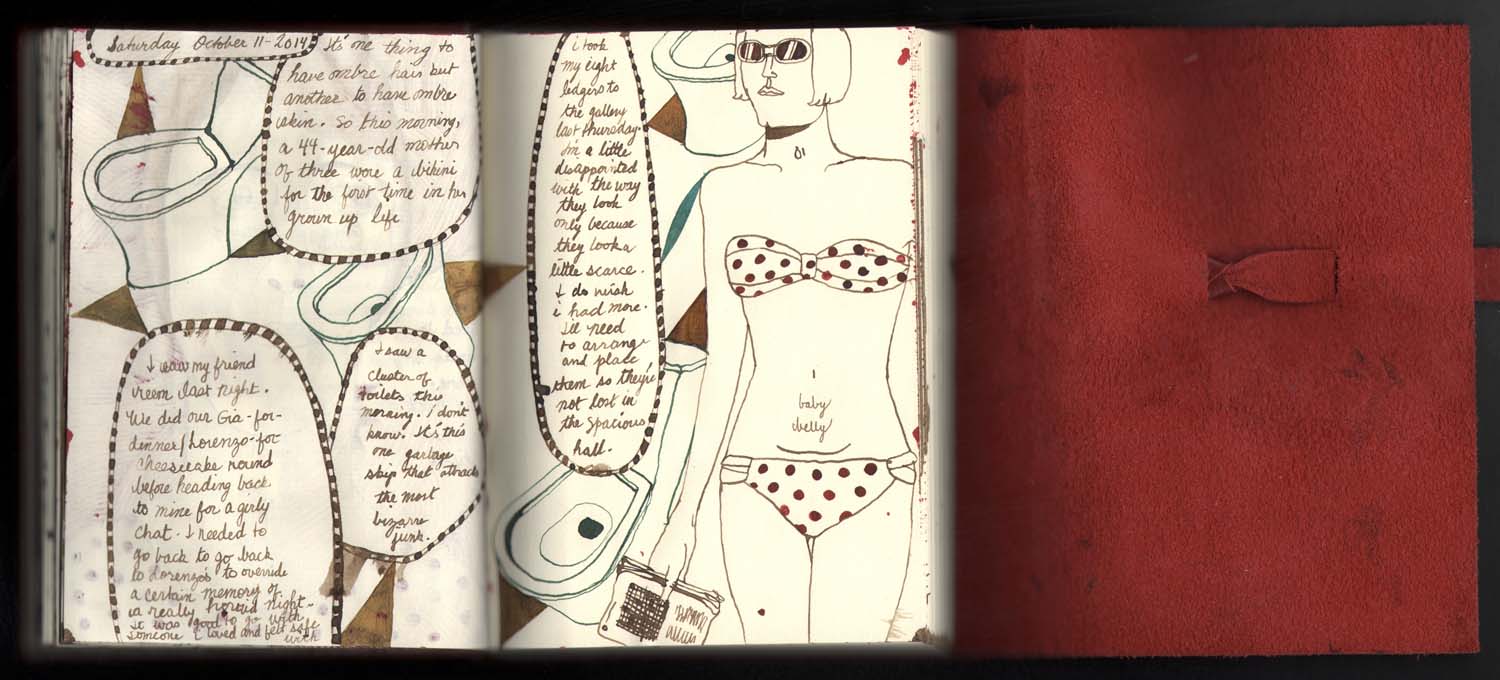 Saturday October 11-2014
It's one thing to
have ombre hair but
another to have ombre
skin. So this morning,
a 44-year-old mother
of three wore a bikini
for the first time in her
grown up life
I saw my friend
last night.
We did our Gia-for-
dinner/Lorenzo-for
cheesecake round
before heading back
to mine for a girly
chat. I needed to
go back to go back
to Lorenzo's to override
a certain memory of
a really horrid night-
it was good to go with
someone I loved and felt safe
with
I saw a
cluster of
toilets this
morning. I don't
know. It's this
one garbage
skip that attracts
the most
bizarre
junk.
i took
my eight
ledgers to
the gallery
last thursday.
I'm a little
disappointed
with the way
they look
only because
they look a
little scarce.
I do wish
i had more.
I'll need
to arrange
and place
them so they're
not lost in
the spacious
hall.
baby
belly